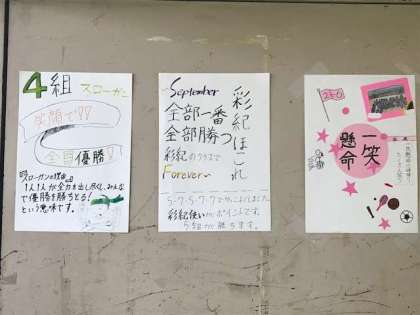 4組 スローガン
笑顔で!!
全員優勝!!
スローガンの理由
1人1人が全力を出し尽くし、みんな
で優勝を勝ちとる!
という意味です。
September
全部一番
全部勝つ
彩紀のクラスで
Forever〜
彩紀ほこれ
5・7・5・7・7で
彩紀使いがポイントです。
5組が勝ちます。
2-6
一笑
懸命